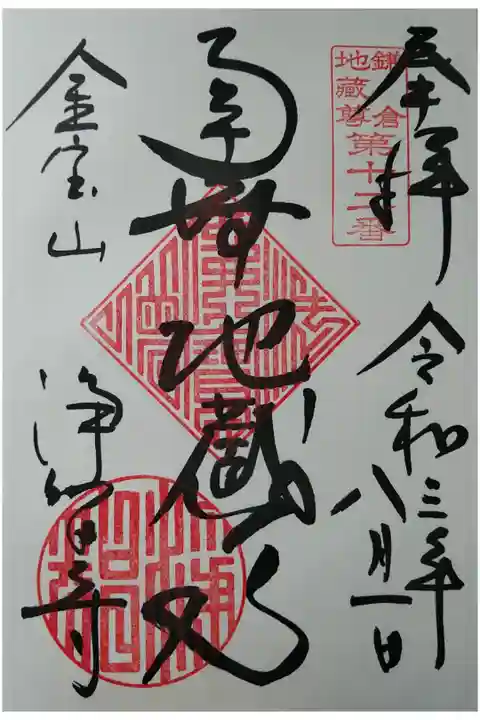 奉拝
鎌倉
地蔵尊第十二番
令和三年
八月一日
南無地蔵
金宝山
浄智寺